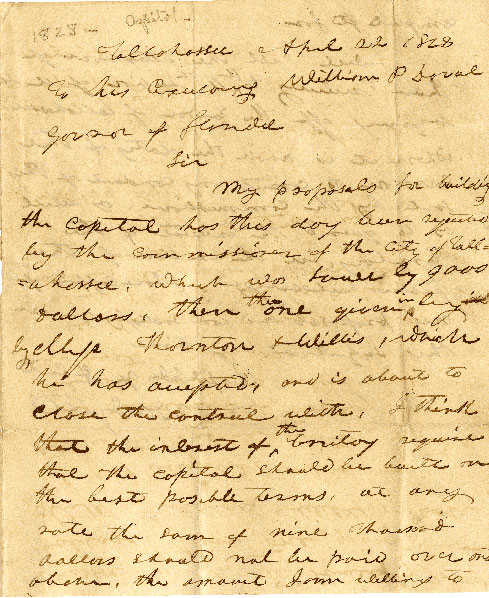 1828 - Capitol -
Tallahassee April 22 1828
To his Excelency William P Duval
govnor of Florida
Sir
My proposals for building
the capital has this day been rejected
by the commissioner of the City of Tall-
=ahassee, which was lower by 9000
Dollars, then the one given in
by Mess Thornton & Willis, which
he has acepted, and is about to
close the contract with, I think
that the interest of the teritoy require
that the capital should be built on
the best posible terms, at any
rate the sum of nine thousand
dollars should not be paid over and
above, the amount I am willing to